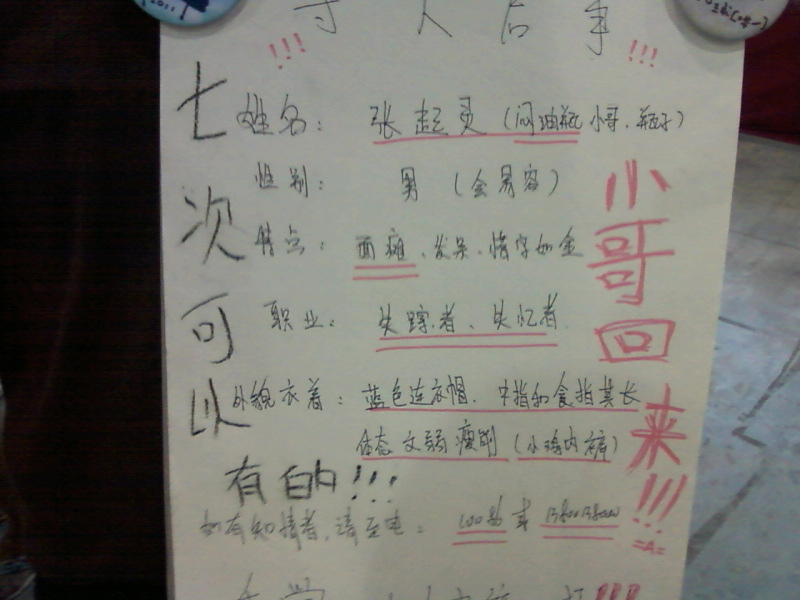 寻人启事
!!! !!!
姓名： 张起灵（闷油瓶 小哥、瓶子）
性别： 男（会易容）
特点： 面瘫、发呆、惜字如金
职业： 失踪者、失忆者
外貌衣着： 蓝色连衣帽、中指和食指其长
体态文弱瘦削（小鸡内裤）
如有知情者，请至电： 100号 或 13800138000
七次可以有的!!!
小哥回来!!!
=A=
2011